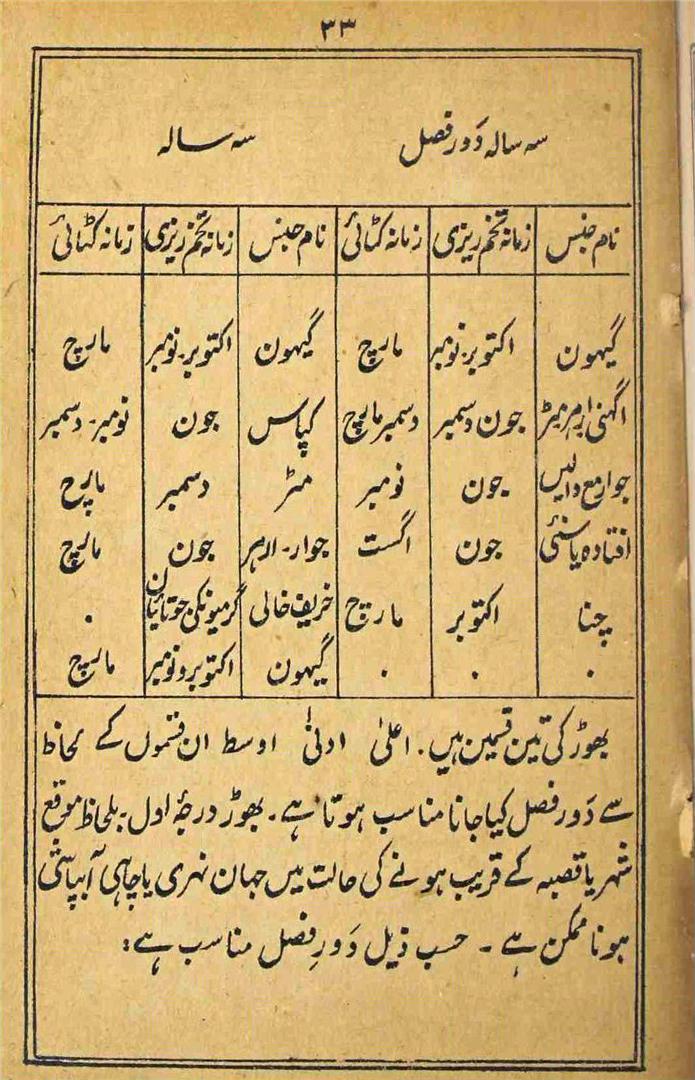 ۳۳
سہ سالہ دَور فصل سہ سالہ
نام جنس زمانہ تخم ریزی زمانہ کٹائی نام جنس زمانہ تخم ریزی زمانہ کٹائی
گیہون اکتوبر۔نومبر مارچ گیہون اکتوبر۔نومبر مارچ
اگہنی ارہر مٹر جون دسمبر دسمبر مارچ کپاس جون نومبر۔دسمبر
جوار مع دالیں جون نومبر مٹر دسمبر مارچ
افتادہ یا سنئی جون اگست جوار۔ارہر جون مارچ
چنا اکتوبر مارچ خریف خالی گرمیونکی جوتائیان ۰
۰ ۰ ۰ گیہون اکتوبر و نومبر مارچ
بھوڑ کی تین قسمین ہیں۔ اعلیٰ ادنیٰ اوسط ان قسموں کے لحاظ
سے دَور فصل کیا جانا مناسب ہوتا ہے۔ بھوڑ درجۂ اول۔ بلحاظ موقع
شہر یا قصبہ کے قریب ہونے کی حالت میں جہان نہری یا چاہی آبپاشی
ہونا ممکن ہے ۔ حسب ذیل دَورِ فصل مناسب ہے: